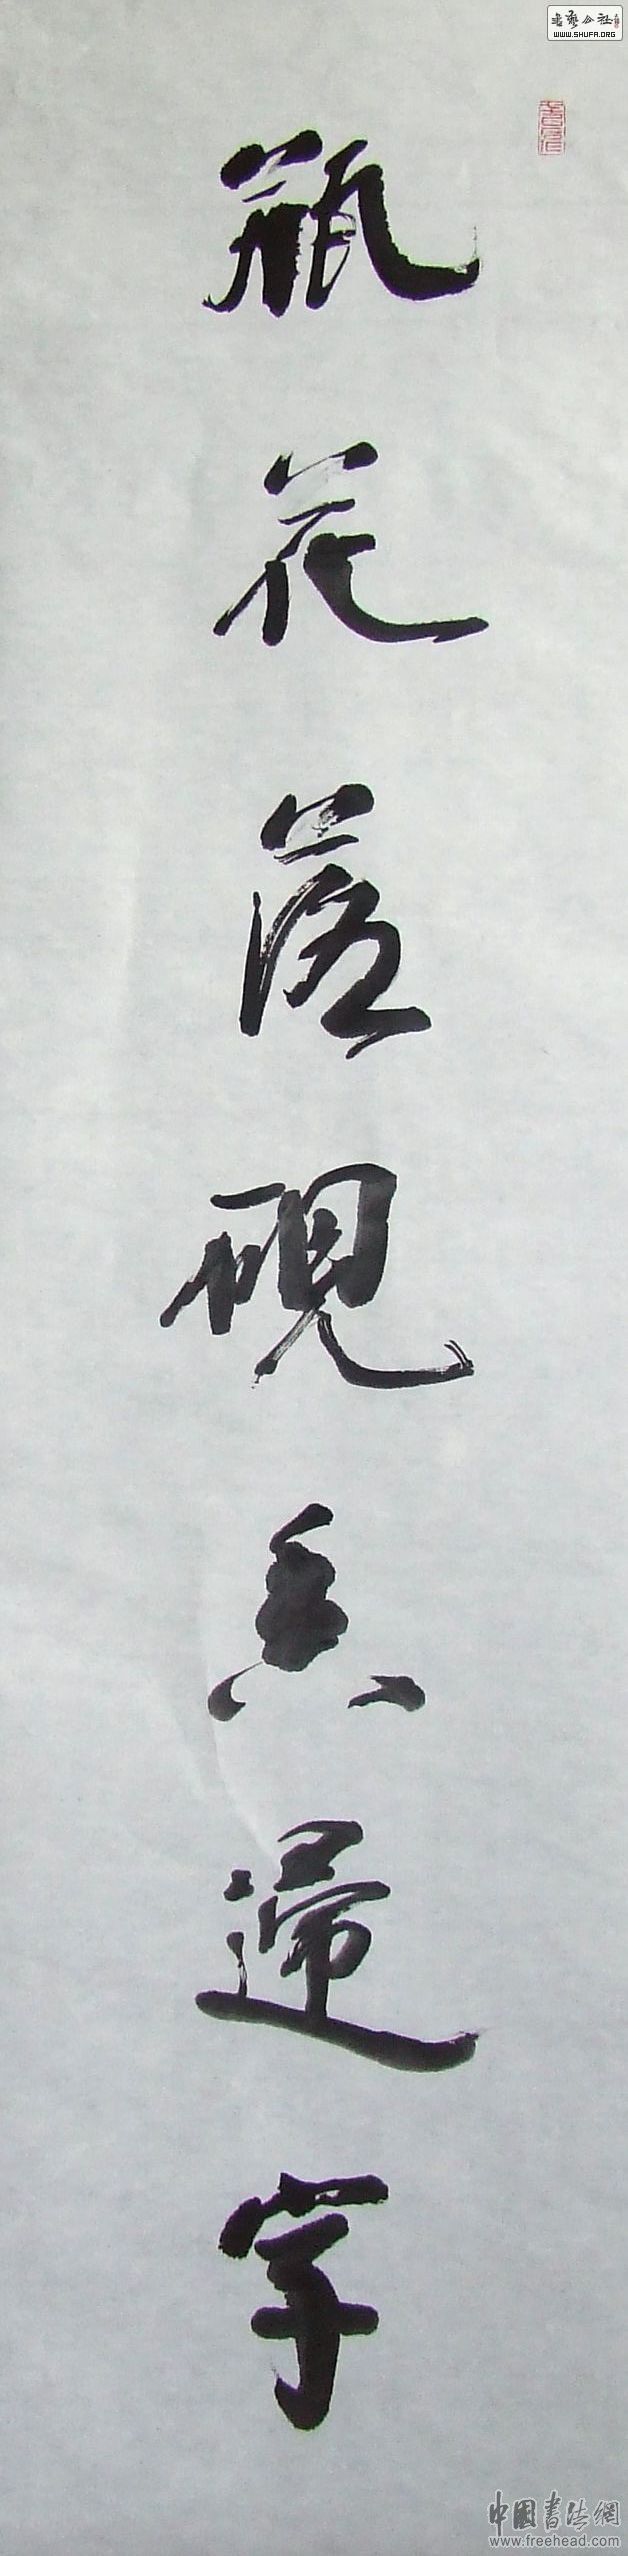 書藝公社
WWW.SHUFA.ORG
瓶花落硯香遝字
中國書法網
www.freehead.com